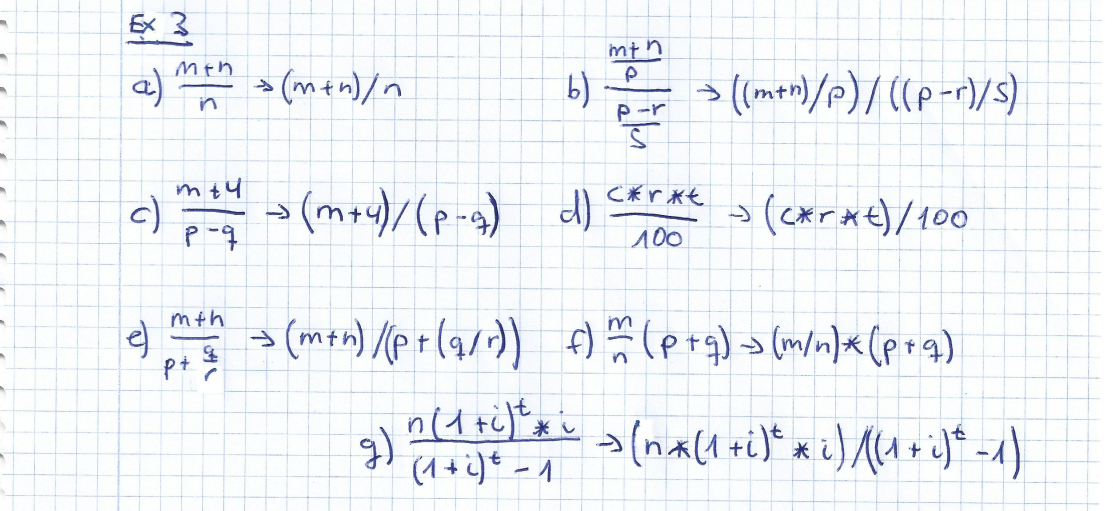 Ex 3
a) (m+n)/n → (m+n)/n b) ((m+n)/p)/((p-r)/S) → ((m+n)/p)/((p-r)/S)
c) (m+4)/(p-q) → (m+4)/(p-q) d) (c*r*t)/100 → (c*r*t)/100
e) (m+n)/(p+q/r) → (m+n)/(p+(q/r)) f) m/n (p+q) → (m/n)*(p+q)
g) (n(1+i)^t * i)/((1+i)^t - 1) → (n*(1+i)^t * i)/((1+i)^t - 1)